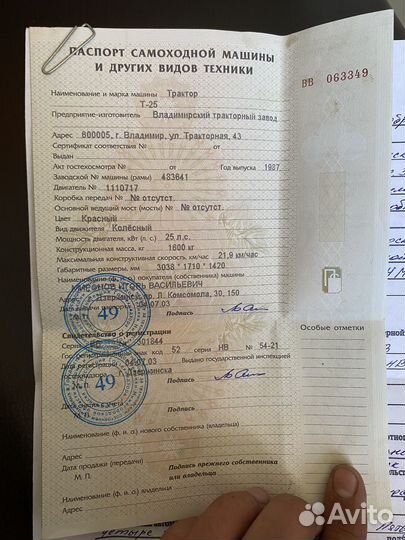 ПАСПОРТ САМОХОДНОЙ МАШИНЫ
И ДРУГИХ ВИДОВ ТЕХНИКИ
ВВ 063349
Наименование и марка машины Трактор
Т-25
Предприятие-изготовитель Владимирский тракторный завод
Адрес 600005, г. Владимир, ул. Тракторная, 43
Сертификат соответствия № от
Выдан
Акт гостехосмотра № от Год выпуска 1987
Заводской № машины (рамы) 483641
Двигатель № 1110717
Коробка передач № № отсутст.
Основной ведущий мост (мосты) № № отсутст.
Цвет Красный
Вид движителя Колёсный
Мощность двигателя, кВт (л. с.) 25 л.с.
Конструкционная масса, кг 1600 кг
Максимальная конструктивная скорость, км/час 21,9 км/час
Габаритные размеры, мм 3038 * 1710 * 1420
Наименование (ф. и. о.) покупателя (собственника) машины
ИГОРЬ ВАСИЛЬЕВИЧ
Адрес Дзержинск, пр. Л. Комсомола, 30, 150
Дата 04.07.03
М.П. Подпись
49
Особые отметки
Свидетельство о регистрации
501844
Гос. знак код 52 серии НВ № 54-21
Дата регистрации 04.07.03 Выдано государственной инспекцией
гостехнадзора г. Дзержинска
М.П. Подпись
49
Дата снятия с учета
М.П.
Наименование (ф. и. о.) нового собственника (владельца)
Адрес
Дата продажи (передачи) Подпись прежнего собственника
М. П. или владельца
Наименование (ф. и. о.) владельца)
четыре
Avito